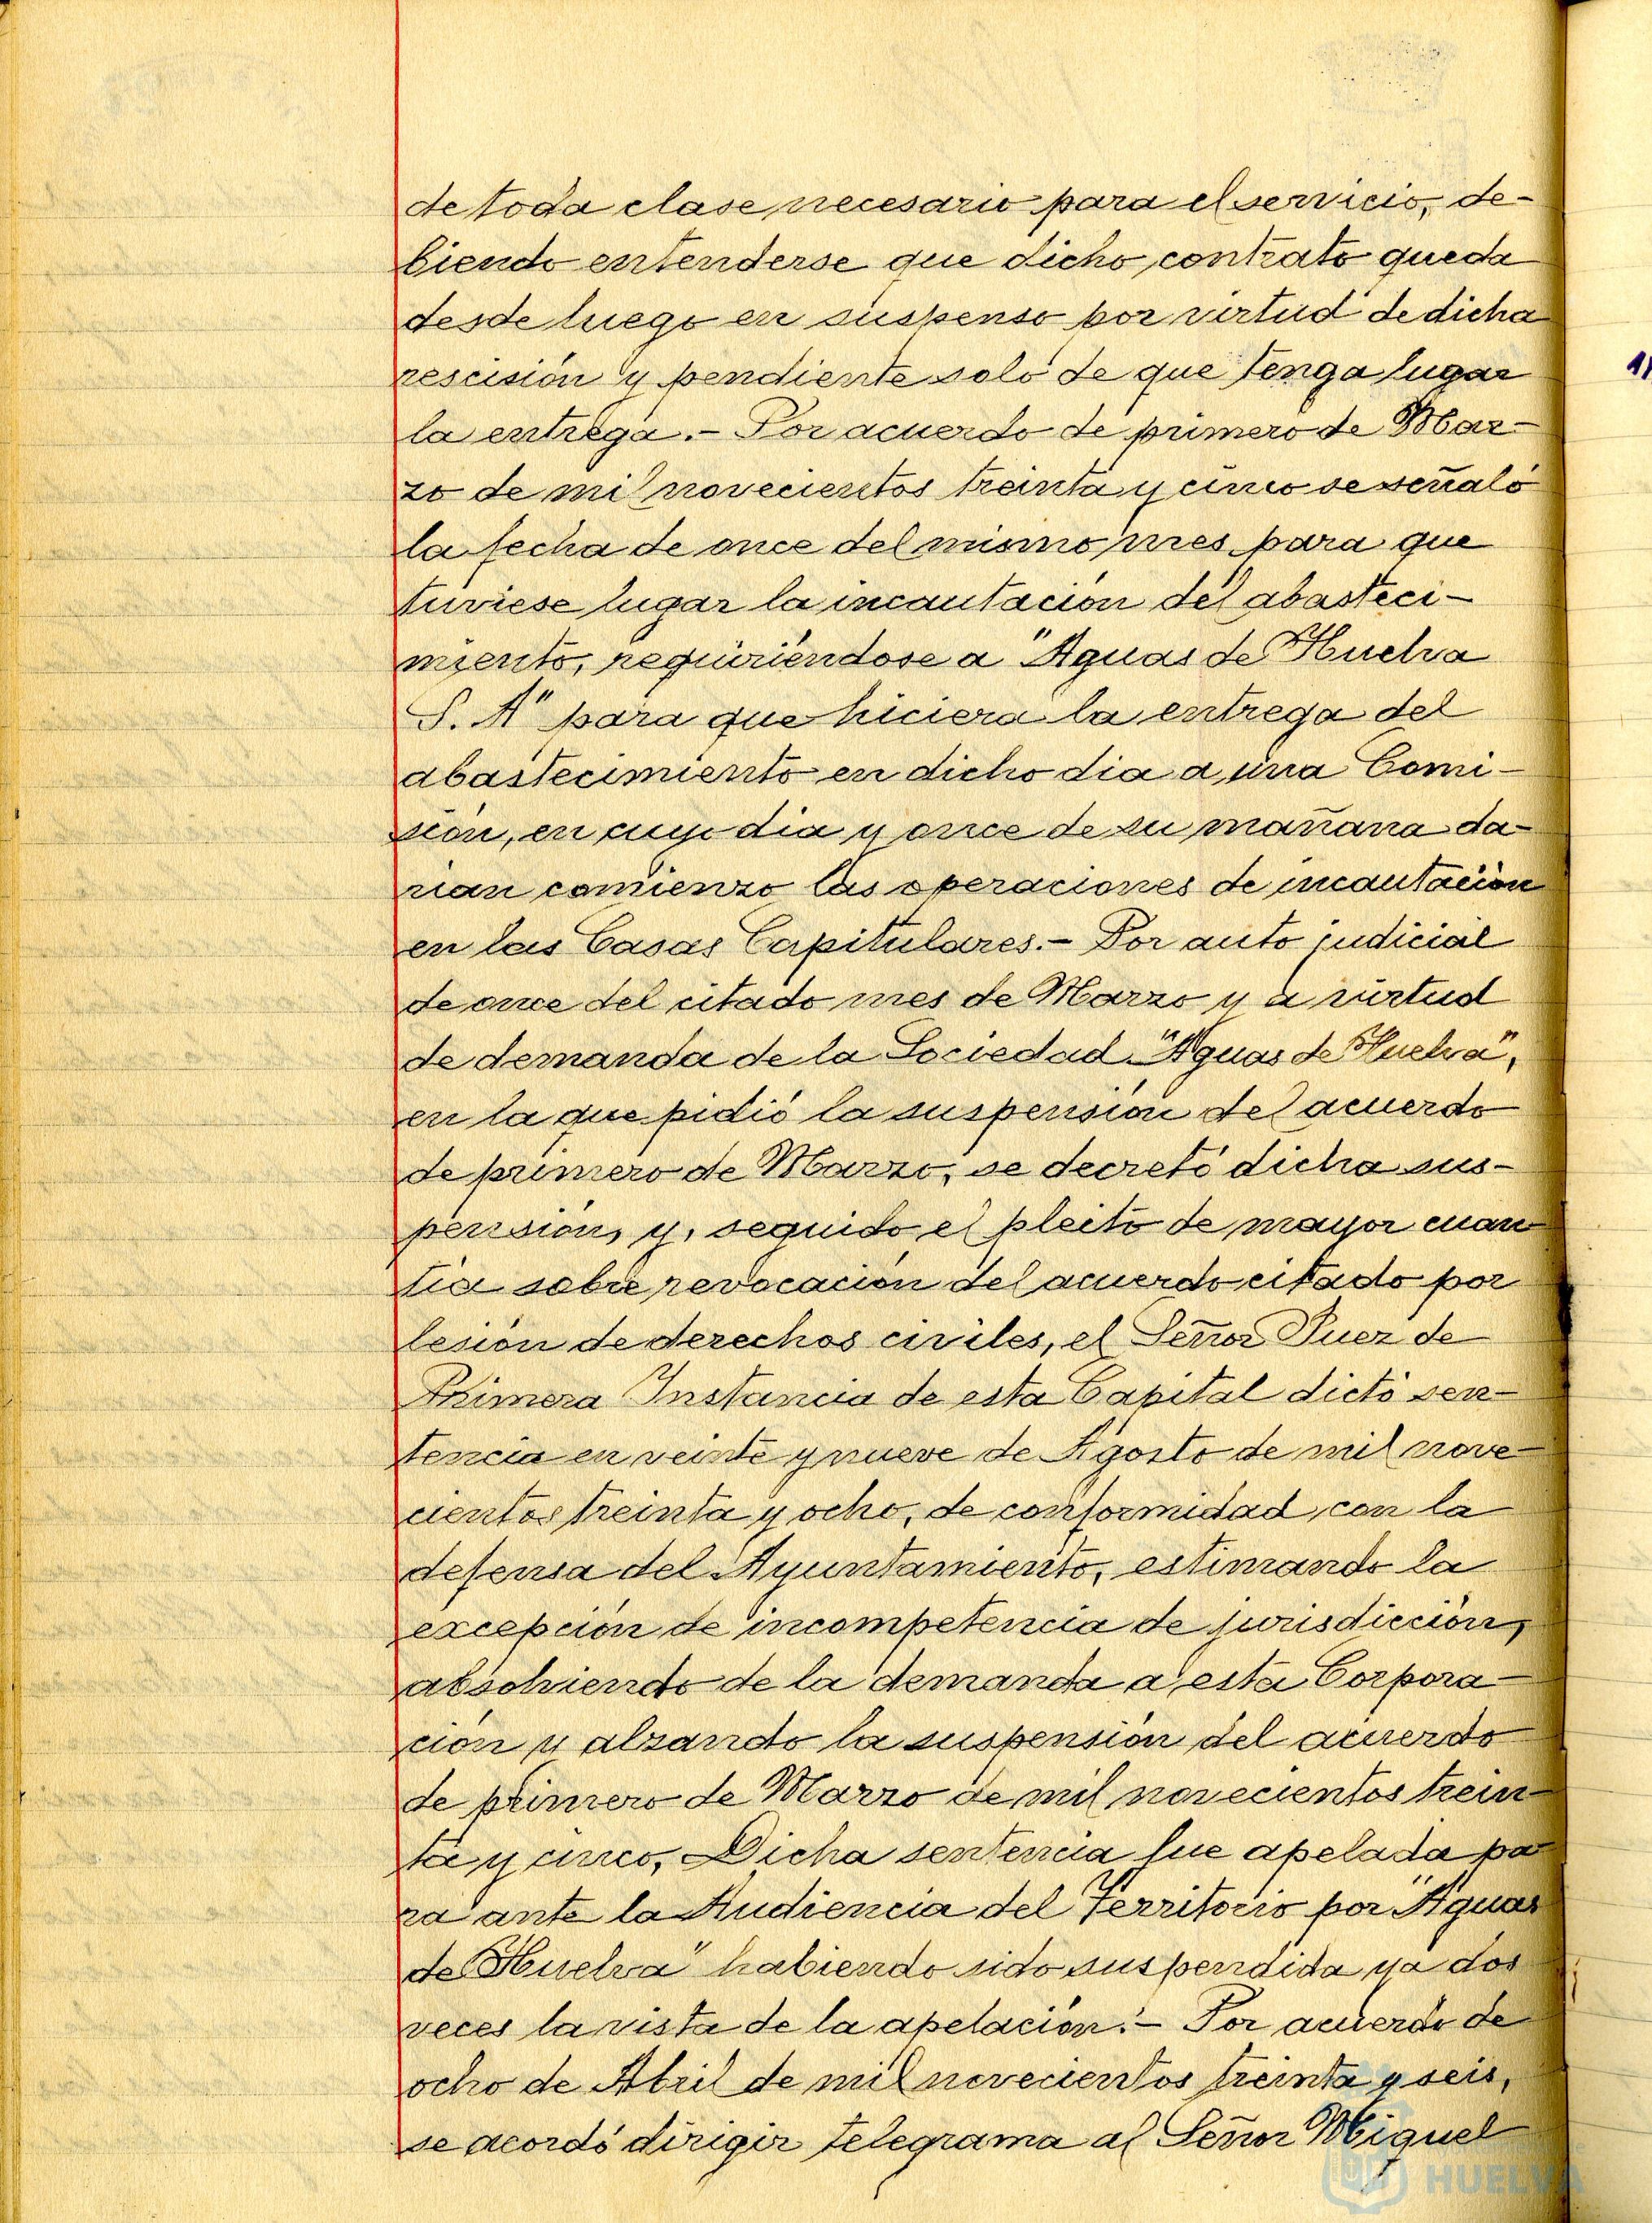 de toda clase necesario para el servicio, de-
biendo entenderse que dicho contrato queda
desde luego en suspenso por virtud de dicha
rescisión y pendiente solo de que tenga lugar
la entrega.- Por acuerdo de primero de Mar-
zo de mil novecientos treinta y cinco se señaló
la fecha de once del mismo mes para que
tuviese lugar la incautación del abasteci-
miento, requiriéndose a "Aguas de Huelva
S. A" para que hiciera la entrega del
abastecimiento en dicho dia a una Comi-
sión, en cuyo dia y once de su mañana da-
rian comienzo las operaciones de incautación
en las Casas Capitulares.- Por auto judicial
de once del citado mes de Marzo y a virtud
de demanda de la Sociedad "Aguas de Huelva",
en la que pidió la suspensión del acuerdo
de primero de Marzo, se decretó dicha sus-
pensión, y, seguido el pleito de mayor cuan
tia sobre revocación del acuerdo citado por
lesión de derechos civiles, el Señor Juez de
Primera Instancia de esta Capital dictó sen-
tencia en veinte y nueve de Agosto de mil nove-
cientos treinta y ocho, de conformidad con la
defensa del Ayuntamiento, estimando la
excepción de incompetencia de jurisdicción,
absolviendo de la demanda a esta Corpora-
ción y alzando la suspensión del acuerdo
de primero de Marzo de mil novecientos trein-
ta y cinco, Dicha sentencia fue apelada pa-
ra ante la Audiencia del Territorio por "Aguas
de Huelva" habiendo sido suspendida ya dos
veces la vista de la apelación.- Por acuerdo de
ocho de Abril de mil novecientos treinta y seis,
se acordó dirigir telegrama al Señor Miguel
HUELVA